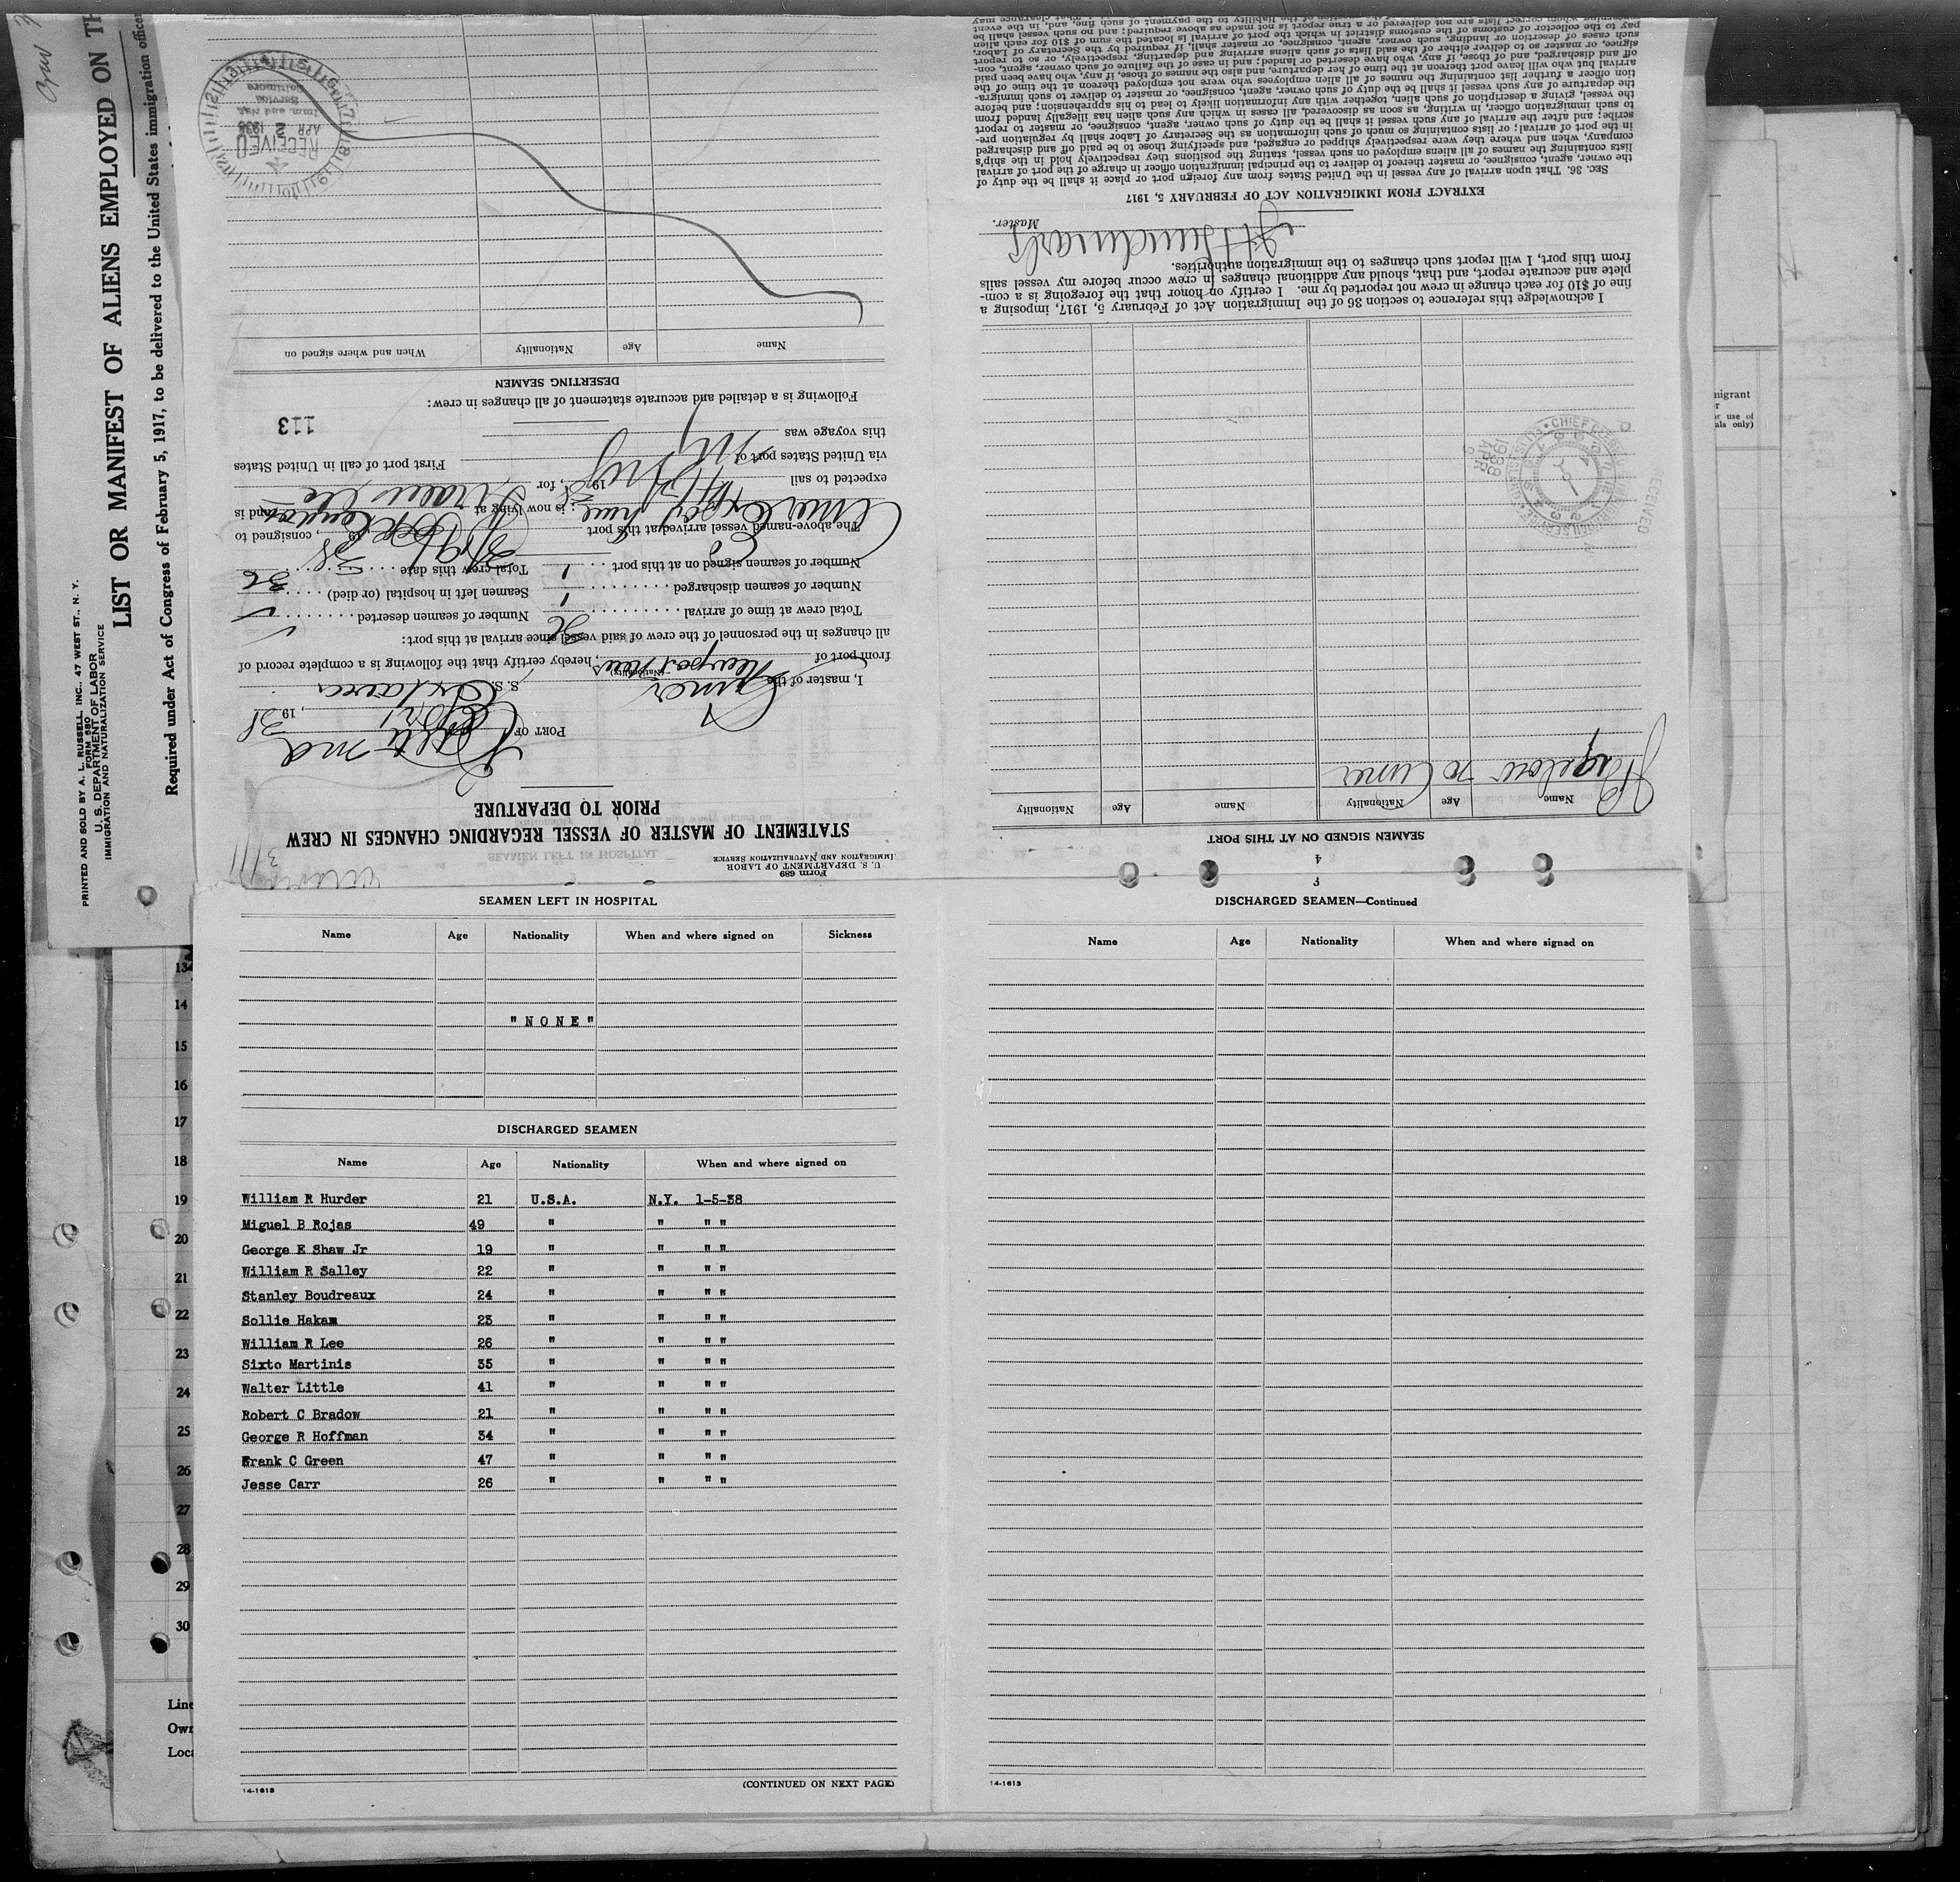 PRINTED AND SOLD BY A. L. RUSSELL, INC., 47 WEST ST., N. Y.
FORM 680
U. S. DEPARTMENT OF LABOR
IMMIGRATION AND NATURALIZATION SERVICE
LIST OR MANIFEST OF ALIENS EMPLOYED ON
Required under Act of Congress of February 5, 1917, to be delivered to the United States immigration
Form 689
U. S. DEPARTMENT OF LABOR
IMMIGRATION AND NATURALIZATION SERVICE
STATEMENT OF MASTER OF VESSEL REGARDING CHANGES IN CREW
PRIOR TO DEPARTURE
PORT OF
Balto Md
, 19 38
I, master of the Amer S. S.
from port of Newport News, hereby certify that the following is a complete record of
(Nationality)
all changes in the personnel of the crew of said vessel since arrival at this port:
Total crew at time of arrival 36 Number of seamen deserted
Number of seamen discharged 1 Seamen left in hospital (or died)
Number of seamen signed on at this port 1 Total crew this date 36
The above-named vessel arrived at this port 19 38, consigned to
Amer Export Line; is now lying at and is
expected to sail 19 38, for
via United States port of First port of call in United States
this voyage was
113
Following is a detailed and accurate statement of all changes in crew:
DESERTING SEAMEN
Name Age Nationality When and where signed on
RECEIVED
APR 2 1938
Imm. and Nat.
Service
Baltimore
4
SEAMEN SIGNED ON AT THIS PORT
Name Age Nationality Name Age Nationality
Amer
I acknowledge this reference to section 36 of the Immigration Act of February 5, 1917, imposing a
fine of $10 for each change in crew not reported by me. I certify on honor that the foregoing is a com-
plete and accurate report, and that, should any additional changes in crew occur before my vessel sails
from this port, I will report such changes to the immigration authorities.
Master.
EXTRACT FROM IMMIGRATION ACT OF FEBRUARY 5, 1917
SEC. 36. That upon arrival of any vessel in the United States from any foreign port or place it shall be the duty of
the owner, agent, consignee, or master thereof to deliver to the principal immigration officer in charge of the port of arrival
lists containing the names of all aliens employed on such vessel, stating the positions they respectively hold in the ship's
company, when and where they were respectively shipped or engaged, and specifying those to be paid off and discharged
in the port of arrival; or lists containing so much of such information as the Secretary of Labor shall by regulation pre-
scribe; and after the arrival of any such vessel it shall be the duty of such owner, agent, consignee, or master to report
to such immigration officer, in writing, as soon as discovered, all cases in which any such alien has illegally landed from
the vessel, giving a description of such alien, together with any information likely to lead to his apprehension; and before
the departure of any such vessel it shall be the duty of such owner, agent, consignee, or master to deliver to such immigra-
tion officer a further list containing the names of all alien employees who were not employed thereon at the time of the
arrival but who will leave port thereon at the time of her departure, and also the names of those, if any, who have been paid
off and discharged, and of those, if any, who have deserted or landed; and in case of the failure of such owner, agent, con-
signee, or master so to deliver either of the said lists of such aliens arriving and departing, respectively, or so to report
such cases of desertion or landing, such owner, agent, consignee, or master shall, if required by the Secretary of Labor,
pay to the collector of customs of the customs district in which the port of arrival is located the sum of $10 for each alien
concerning whom correct lists are not delivered or a true report is not made as above required; and no such vessel shall be
SEAMEN LEFT IN HOSPITAL
Name Age Nationality When and where signed on Sickness
"NONE"
DISCHARGED SEAMEN
Name Age Nationality When and where signed on
William R Hurder 21 U.S.A. N.Y. 1-5-38
Miguel B Rojas 49 " " " "
George E Shaw Jr 19 " " " "
William R Salley 22 " " " "
Stanley Boudreaux 24 " " " "
Sollie Hakam 23 " " " "
William R Lee 26 " " " "
Sixto Martinis 35 " " " "
Walter Little 41 " " " "
Robert C Bradow 21 " " " "
George R Hoffman 34 " " " "
Frank C Green 47 " " " "
Jesse Carr 26 " " " "
14-1613
(CONTINUED ON NEXT PAGE)
3
DISCHARGED SEAMEN—Continued
Name Age Nationality When and where signed on
14-1613
13
14
15
16
17
18
19
20
21
22
23
24
25
26
27
28
29
30
Line